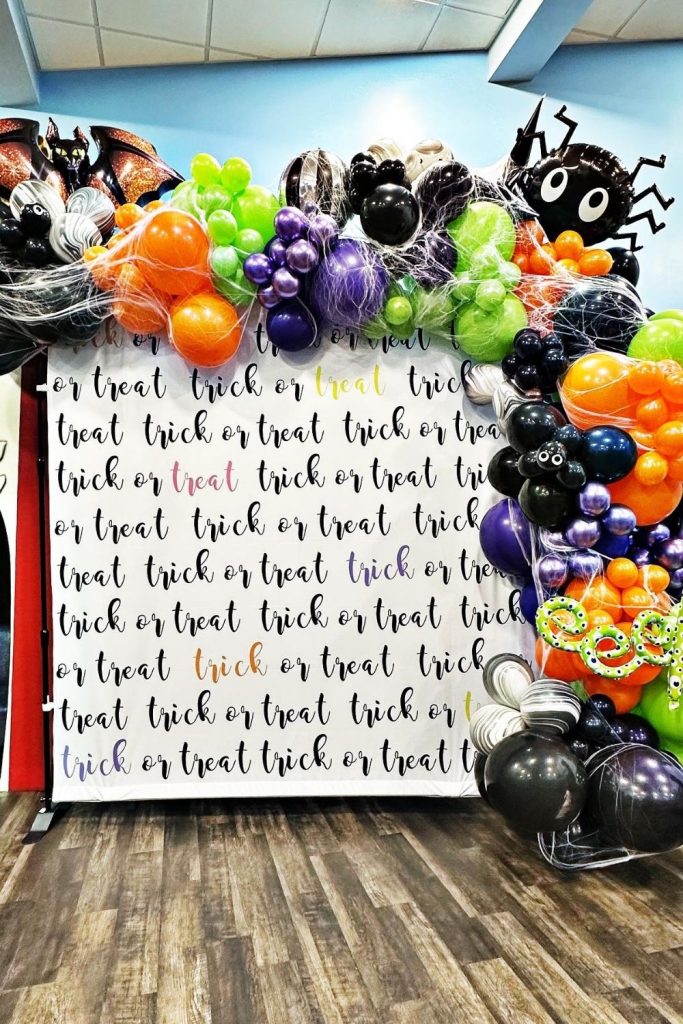 trick or trick or treat
or treat trick or treat trick
treat trick or treat trick or trea
trick or treat trick or treat tri
or treat trick or treat trick
treat trick or treat trick or tre
trick or treat trick or treat trick
or treat trick or treat trick
treat trick or treat trick or t
trick or treat trick or treat t
eeek